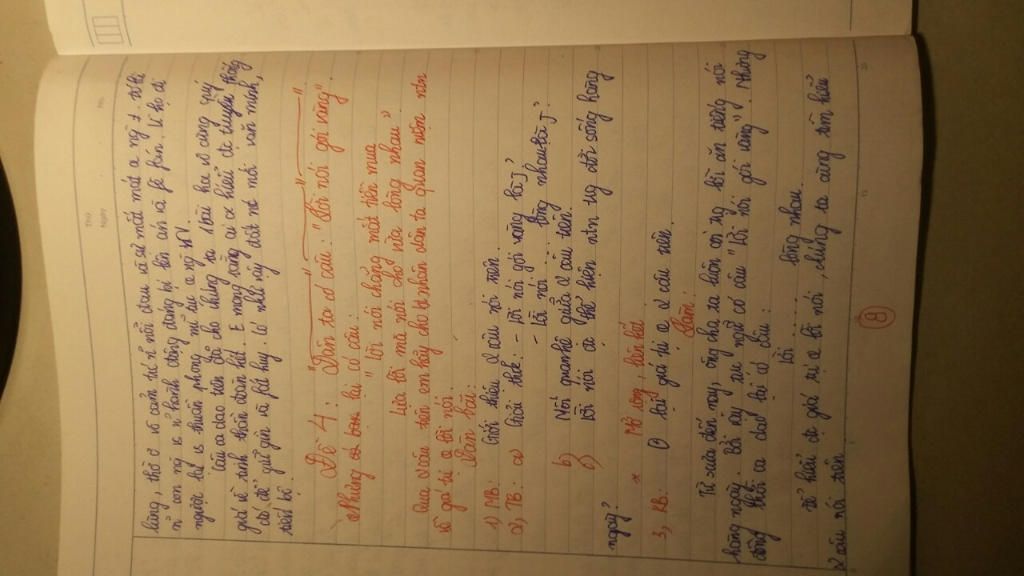 Thứ
Ngày
No.
lùng, thờ ơ vô cảm trc nỗi đau và sự mất mát of ng ≠. Với
n con ng vs n hành động đáng bị lên án và fê fán. Vì họ đi
ngược lại vs thuần phong mĩ tục of ng VN.
Câu ca dao trên đã cho chúng ta 1 bài học vô cùng quý
giá về tinh thần đoàn kết. E mong rằng ai cx hiểu đc truyền thống
đó để giữ gìn và fát huy. Có như vậy đất nc mới văn minh,
tiến bộ.
Đề 4: "Dân ta có câu: "Lời nói gói vàng".
Nhưng bên lại có câu:
" Lời nói chẳng mất tiền mua
Lựa lời mà nói cho vừa lòng nhau"
Qua 2 câu trên em hãy cho biết nhân dân ta quan niệm ntn
về giá trị of lời nói.
Dàn bài:
1) MB: Giới thiệu 2 câu nói trên.
2) TB: a) Giải thik: - Lời nói gói vàng là j?
- Lời nói ... lòng nhau là j?
b) Mối quan hệ giữa 2 câu trên.
c) Lời nói đc thể hiện ntn trg đời sống hàng
ngày?
* Mở rộng liên kết
3) KB: Θ lại giá trị of 2 câu trên.
Bài làm:
Từ xưa đến nay, ông cha ta luôn coi trọng lời ăn tiếng nói
hàng ngày. Bởi vậy, tục ngữ có câu "Lời nói gói vàng". Nhưng
đồng thời ca dao lại có câu:
Lời ........ lòng nhau.
Để hiểu đc giá trị of lời nói, chúng ta cùng tìm hiểu
2 câu nói trên.
8